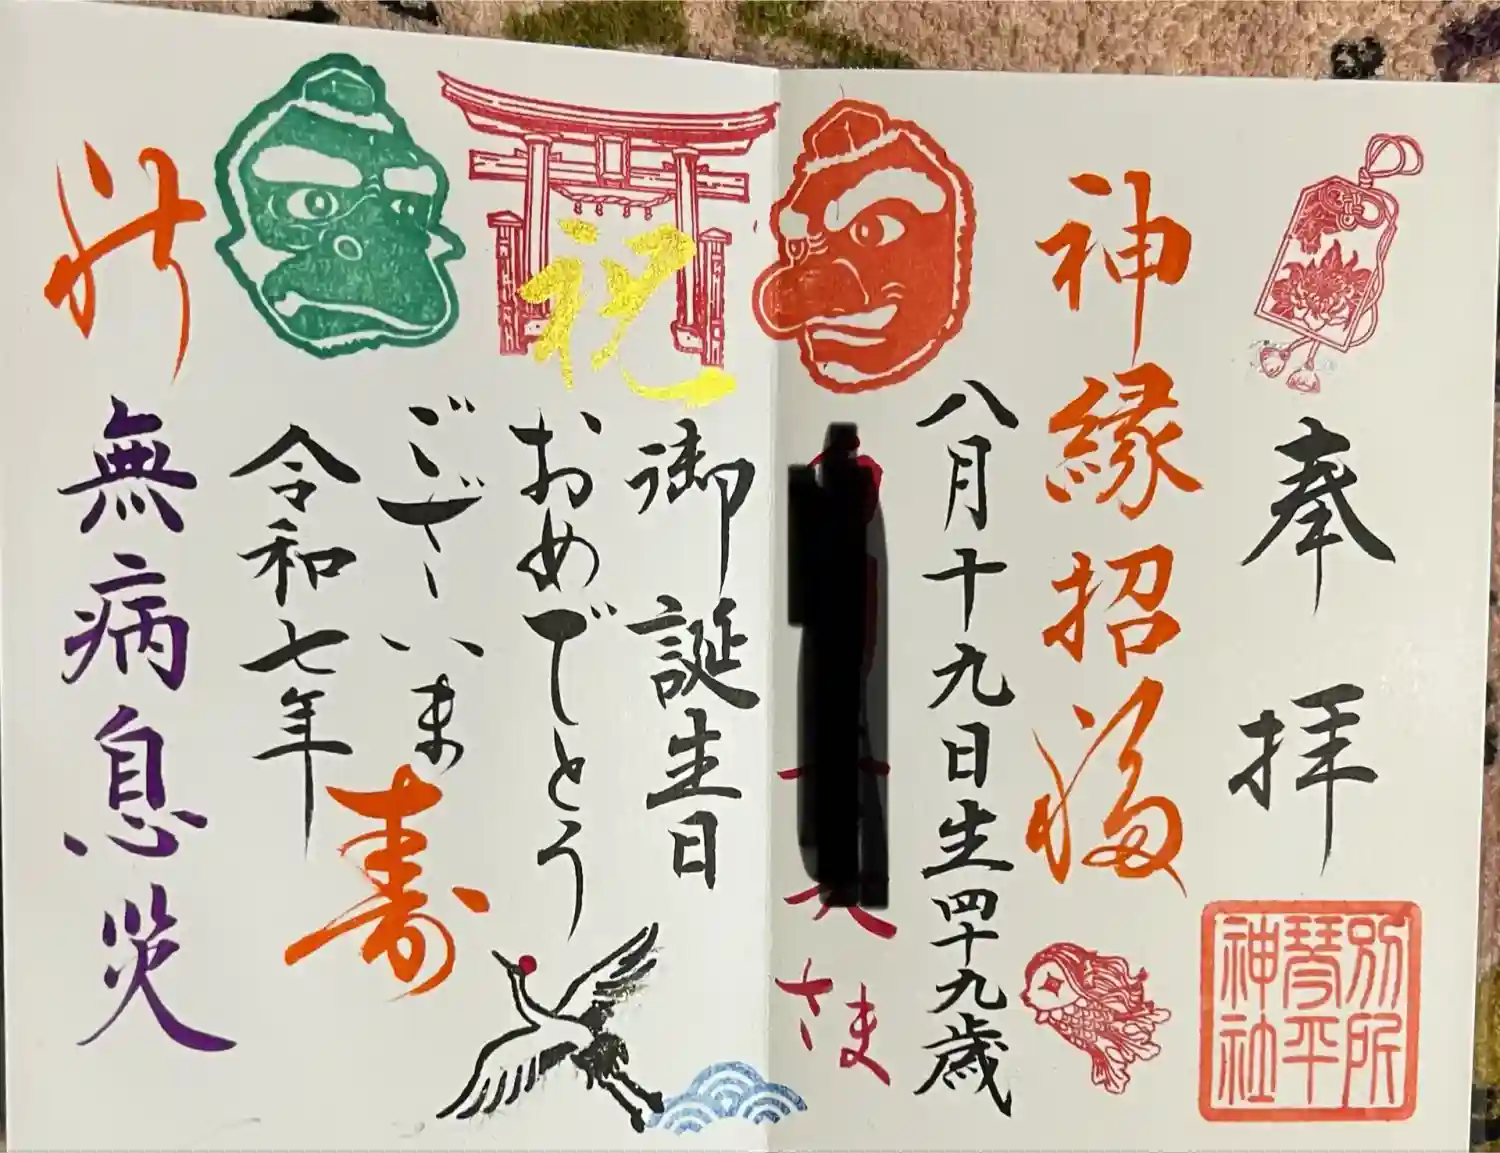 奉拝
別所
琴平
神社
神縁招福
八月十九日生四十九歳
さま
祝
御誕生日
おめでとう
ございま寿
令和七年
祈
無病息災